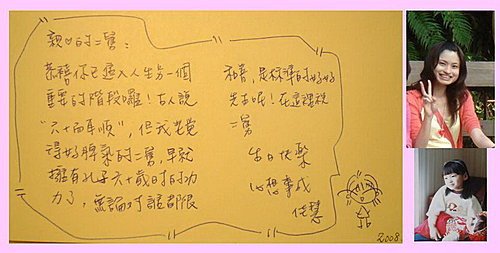 親♡的二舅：
恭禧你已邁入人生另一個
重要的階段囉！古人說
"六十而耳順"，但我覺
得好脾氣的二舅，早就
擁有孔子六十歲時的功
力了，無論對誰都很
和善，是標準的好好
先生呢！在這裡祝
二舅
生日快樂
心想事成
慧
2008